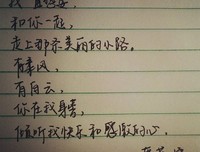 和你一起,
走上那条美丽的小路。
有春风,
有白云,
你在我身旁,
倾听我快乐和感激的心。